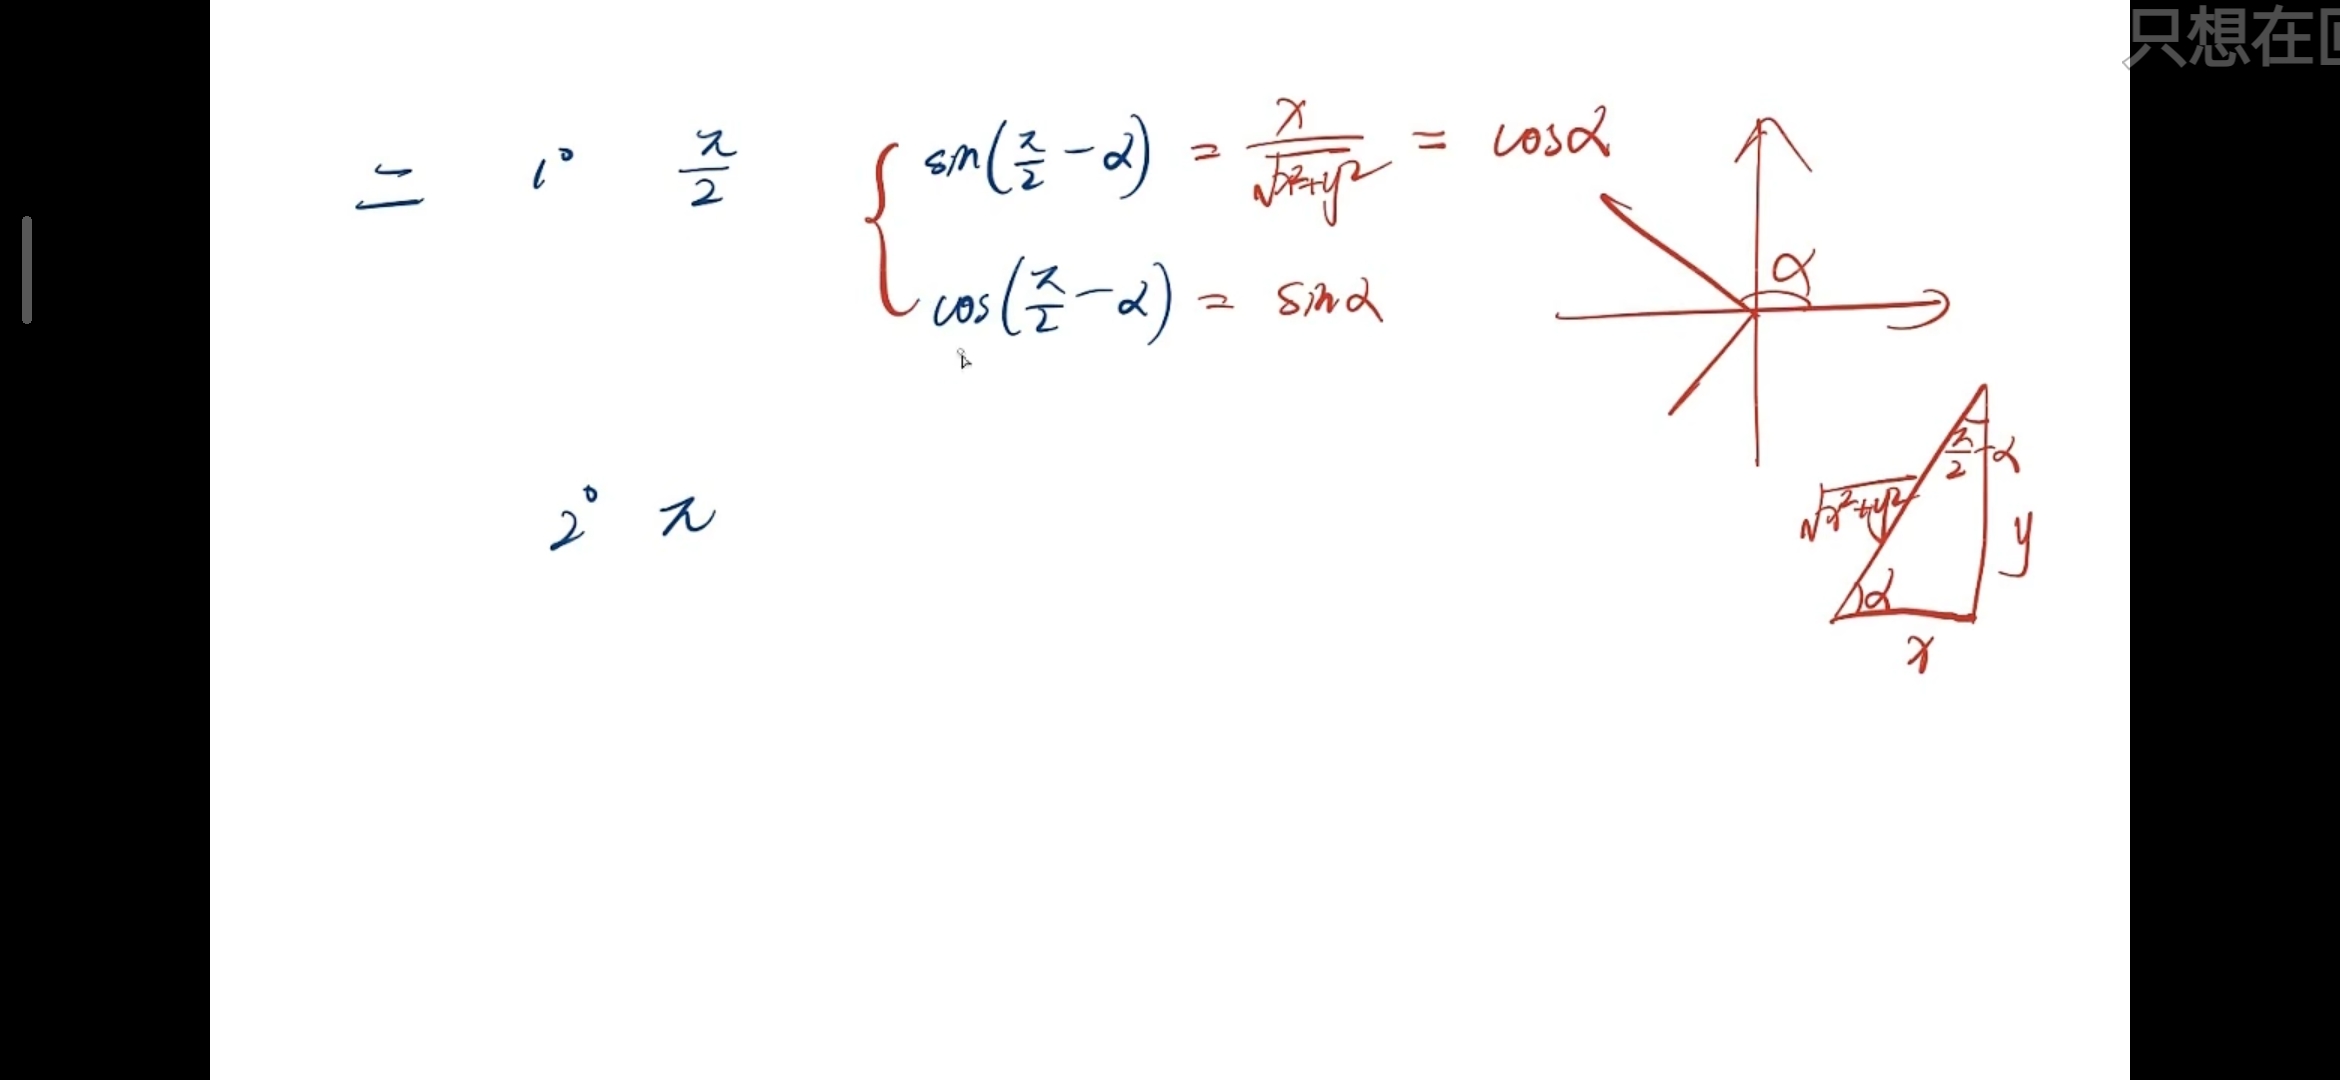 只想在
二 1° π/2 { sin(π/2 - α) = x/√(x²+y²) = cosα
cos(π/2 - α) = sinα
α
2° π
π/2 - α
√(x²+y²)
y
α
x